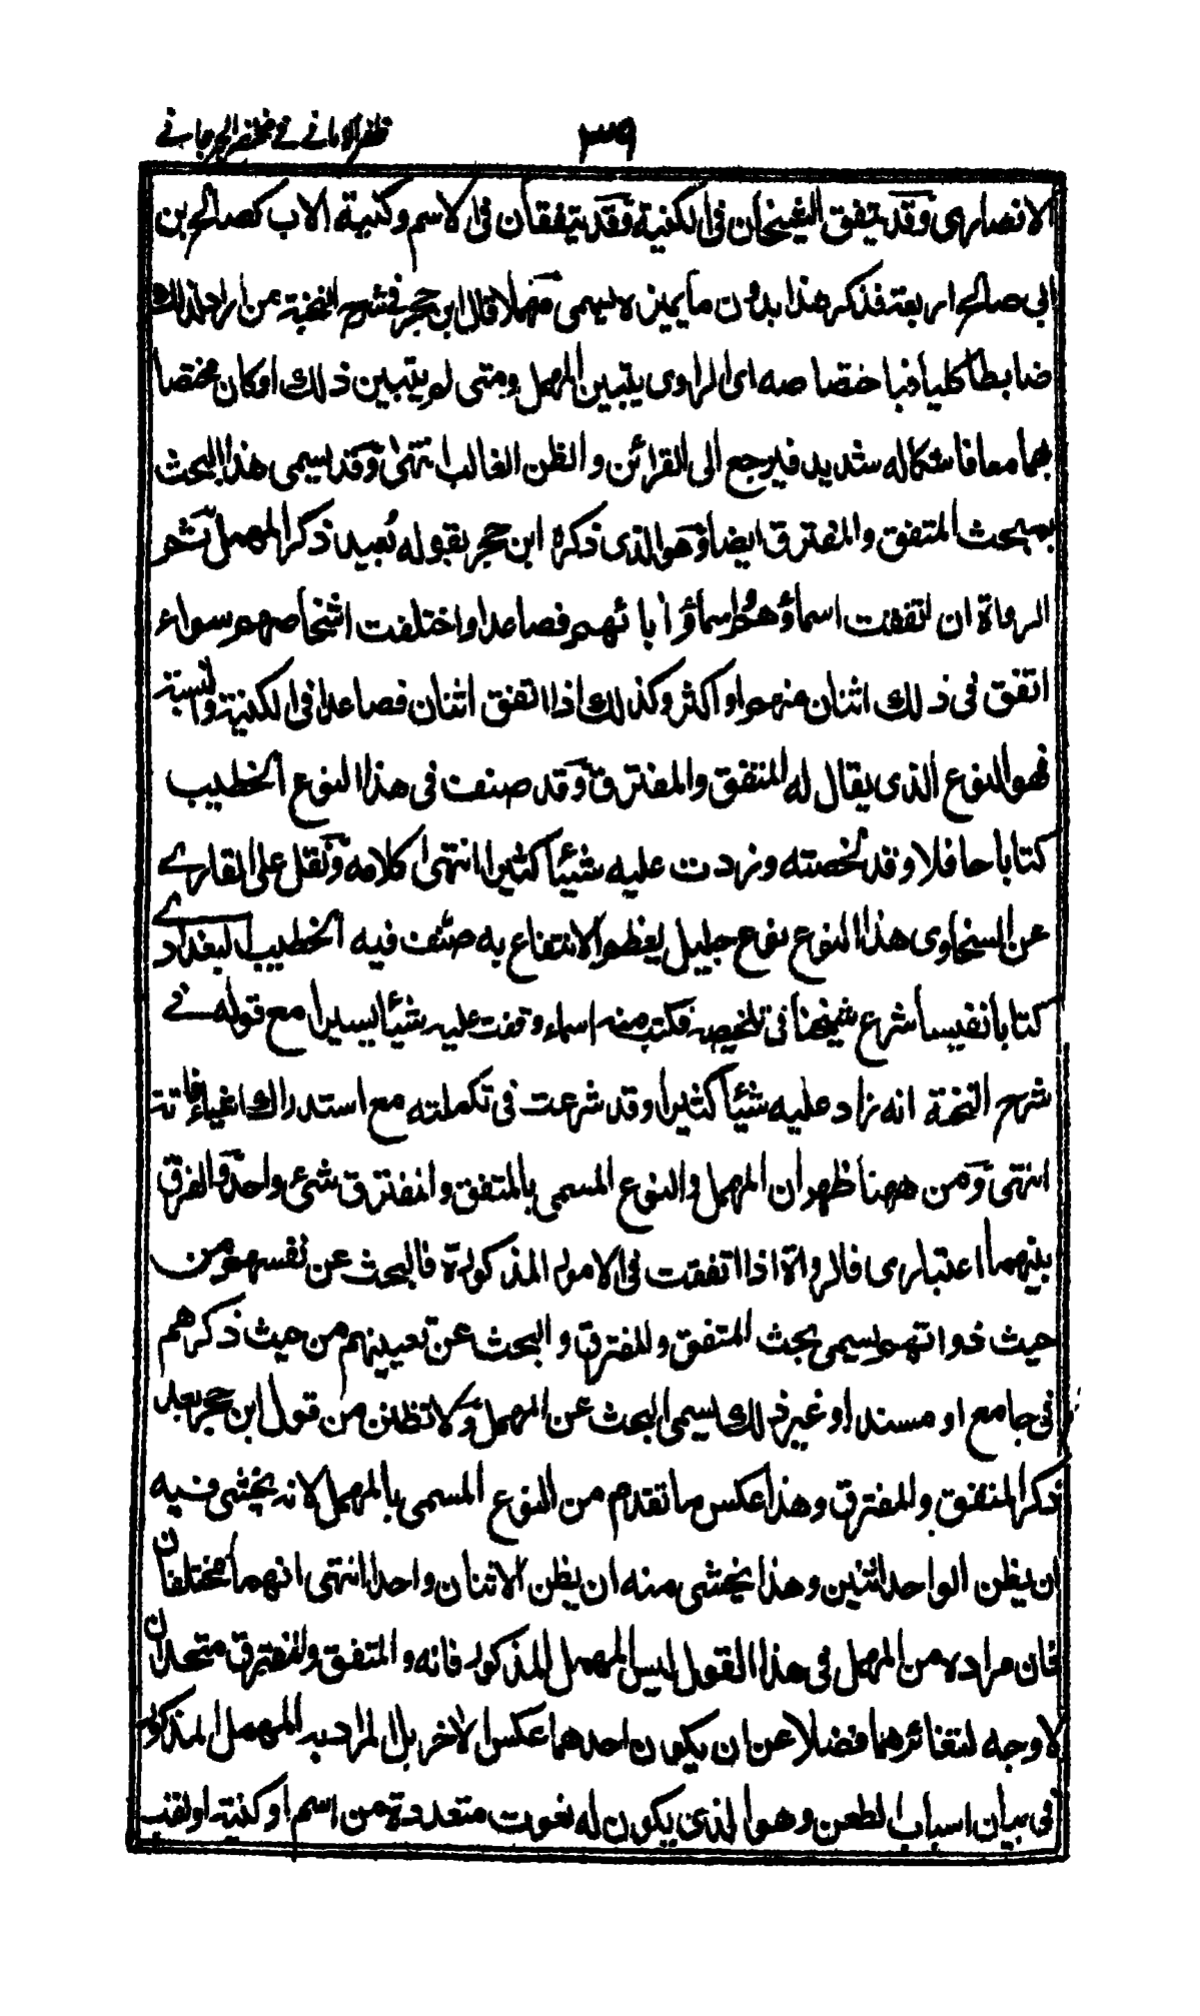 ظفر الامانے فے مختصر الجرجانے
٣٩
الانصاری وقد یتفق الشیخان فی الکنیة وقد یتفقان فی الاسم وکنیة الاب کصالح بن
ابی صالح اربعة فذکر هذا بدون ما یمیزه یسمی مهملا قال ابن حجر فی شرح النخبة من اراد لذلك
ضابطا کلیا فباختصاصه ای الراوی یتبین المهمل ومتی لم یتبین ذلك او کان مختصا
بهما معا فاشکاله شدید فیرجع الی القرائن والظن الغالب انتهی وقد یسمی هذا البحث
بمبحث المتفق والمفترق ایضا وهو الذی ذکره ابن حجر بقوله بُعید ذکر المهمل ثم
الرواة ان اتفقت اسماؤهم واسماؤ اٰبائهم فصاعدا واختلفت اشخاصهم سواء
اتفق فی ذلك اثنان منهم او اکثر وکذلك اذا اتفق اثنان فصاعدا فی الکنیة والنسبة
فهو النوع الذی یقال له المتفق والمفترق وقد صنف فی هذا النوع الخطیب
کتابا حافلا وقد لخصته وزدت علیه شیئا کثیرا انتهی کلامه ونقل علی القارے
عن السخاوی هذا النوع نوع جلیل یعظم الانتفاع به صنّف فیه الخطیب البغدادے
کتابا نفیسا شرع شیخنا فی تلخیصه فکتب منه اسماء وقفت علیه شیئا یسیرا مع قوله فے
شرح النخبة انه زاد علیه شیئا کثیرا وقد شرعت فی تکملته مع استدراك اشیاء فاتته
انتهی ومن ههنا ظهر ان المهمل والنوع المسمی بالمتفق والمفترق شیء واحد والفرق
بینهما اعتباری فالرواة اذا اتفقت فی الامور المذکورة فالبحث عن نفسهم من
حیث ذواتهم یسمی بحث المتفق والمفترق والبحث عن تعیینهم من حیث ذکرهم
فی جامع او مسند او غیر ذلك یسمی البحث عن المهمل ولا تظنن من قول ابن حجر بعد
ذکر المتفق والمفترق وهذا عکس ما تقدم من النوع المسمی بالمهمل لانه یخشی فیه
ان یظن الواحد اثنین وهذا یخشی منه ان یظن الاثنان واحدا انتهی انهما مختلفان
فان مراده من المهمل فی هذا القول لیس المهمل المذکور فانه والمتفق والمفترق متحدان
لا وجه لتغائرهما فضلا عن ان یکون احدهما عکس الاخر بل المراد به المهمل المذکور
فی بیان اسباب الطعن وهو الذی یکون له نعوت متعددة من اسم او کنیة او لقب